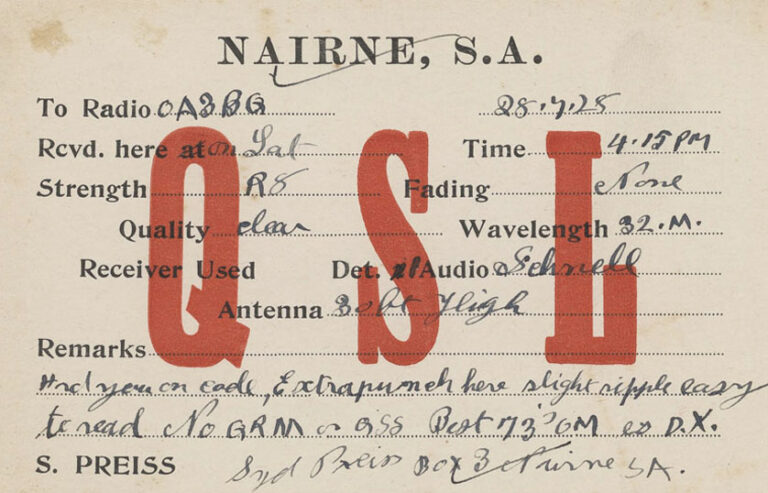 NAIRNE, S.A.
To Radio OA3BG 28.7.28
Rcvd. here at on Sat Time 4.15 PM
Strength R8 Fading None
Quality clear Wavelength 32.M.
Receiver Used Det. Audio Schnell
Antenna 30ft High
Remarks
Hrd you on code, Extra punch here slight ripple easy
to read No QRM or QSS Best 73's OM es D.X.
S. PREISS Syd Preiss Box 3 Nairne SA.
QSL